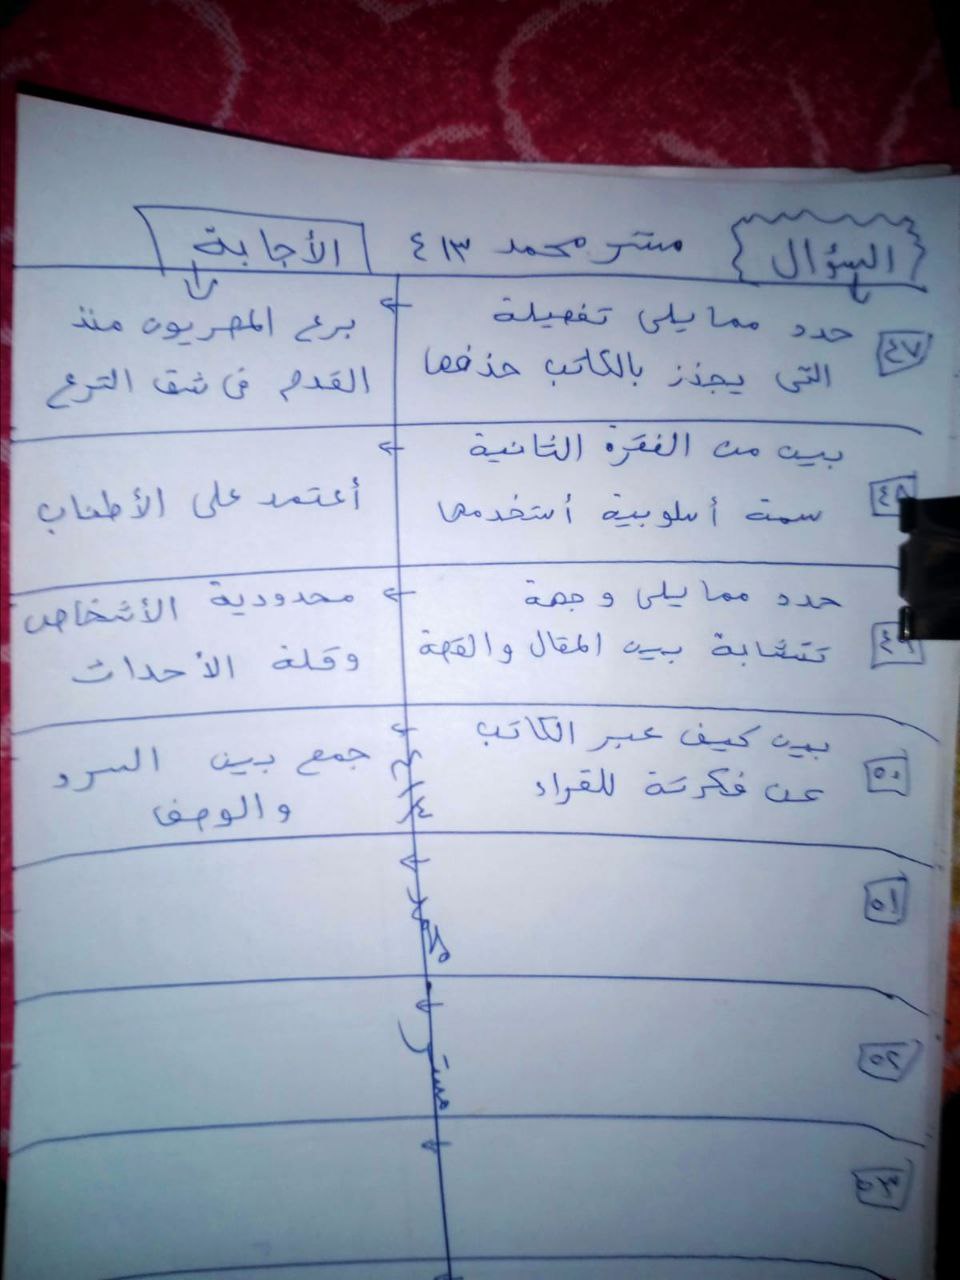 السؤال مستر محمد ٤١٣ الأجابة
٤٧ حدد مما يلى تفصيلة
التى يجذز بالكاتب حذفها
برع المصريون منذ
القدم فى شق الترع
٤٨ بين من الفقرة الثانية
سمة أسلوبية أستخدمها
أعتمد على الأطناب
٤٩ حدد مما يلى وجهة
تتشابة بين المقال والقصة
محدودية الأشخاص
وقلة الأحداث
٥٠ بين كيف عبر الكاتب
عن فكرتة للقراء
جمع بين السرد
والوصف
٥١
٥٢
٥٣
مستر محمد ٤١٣